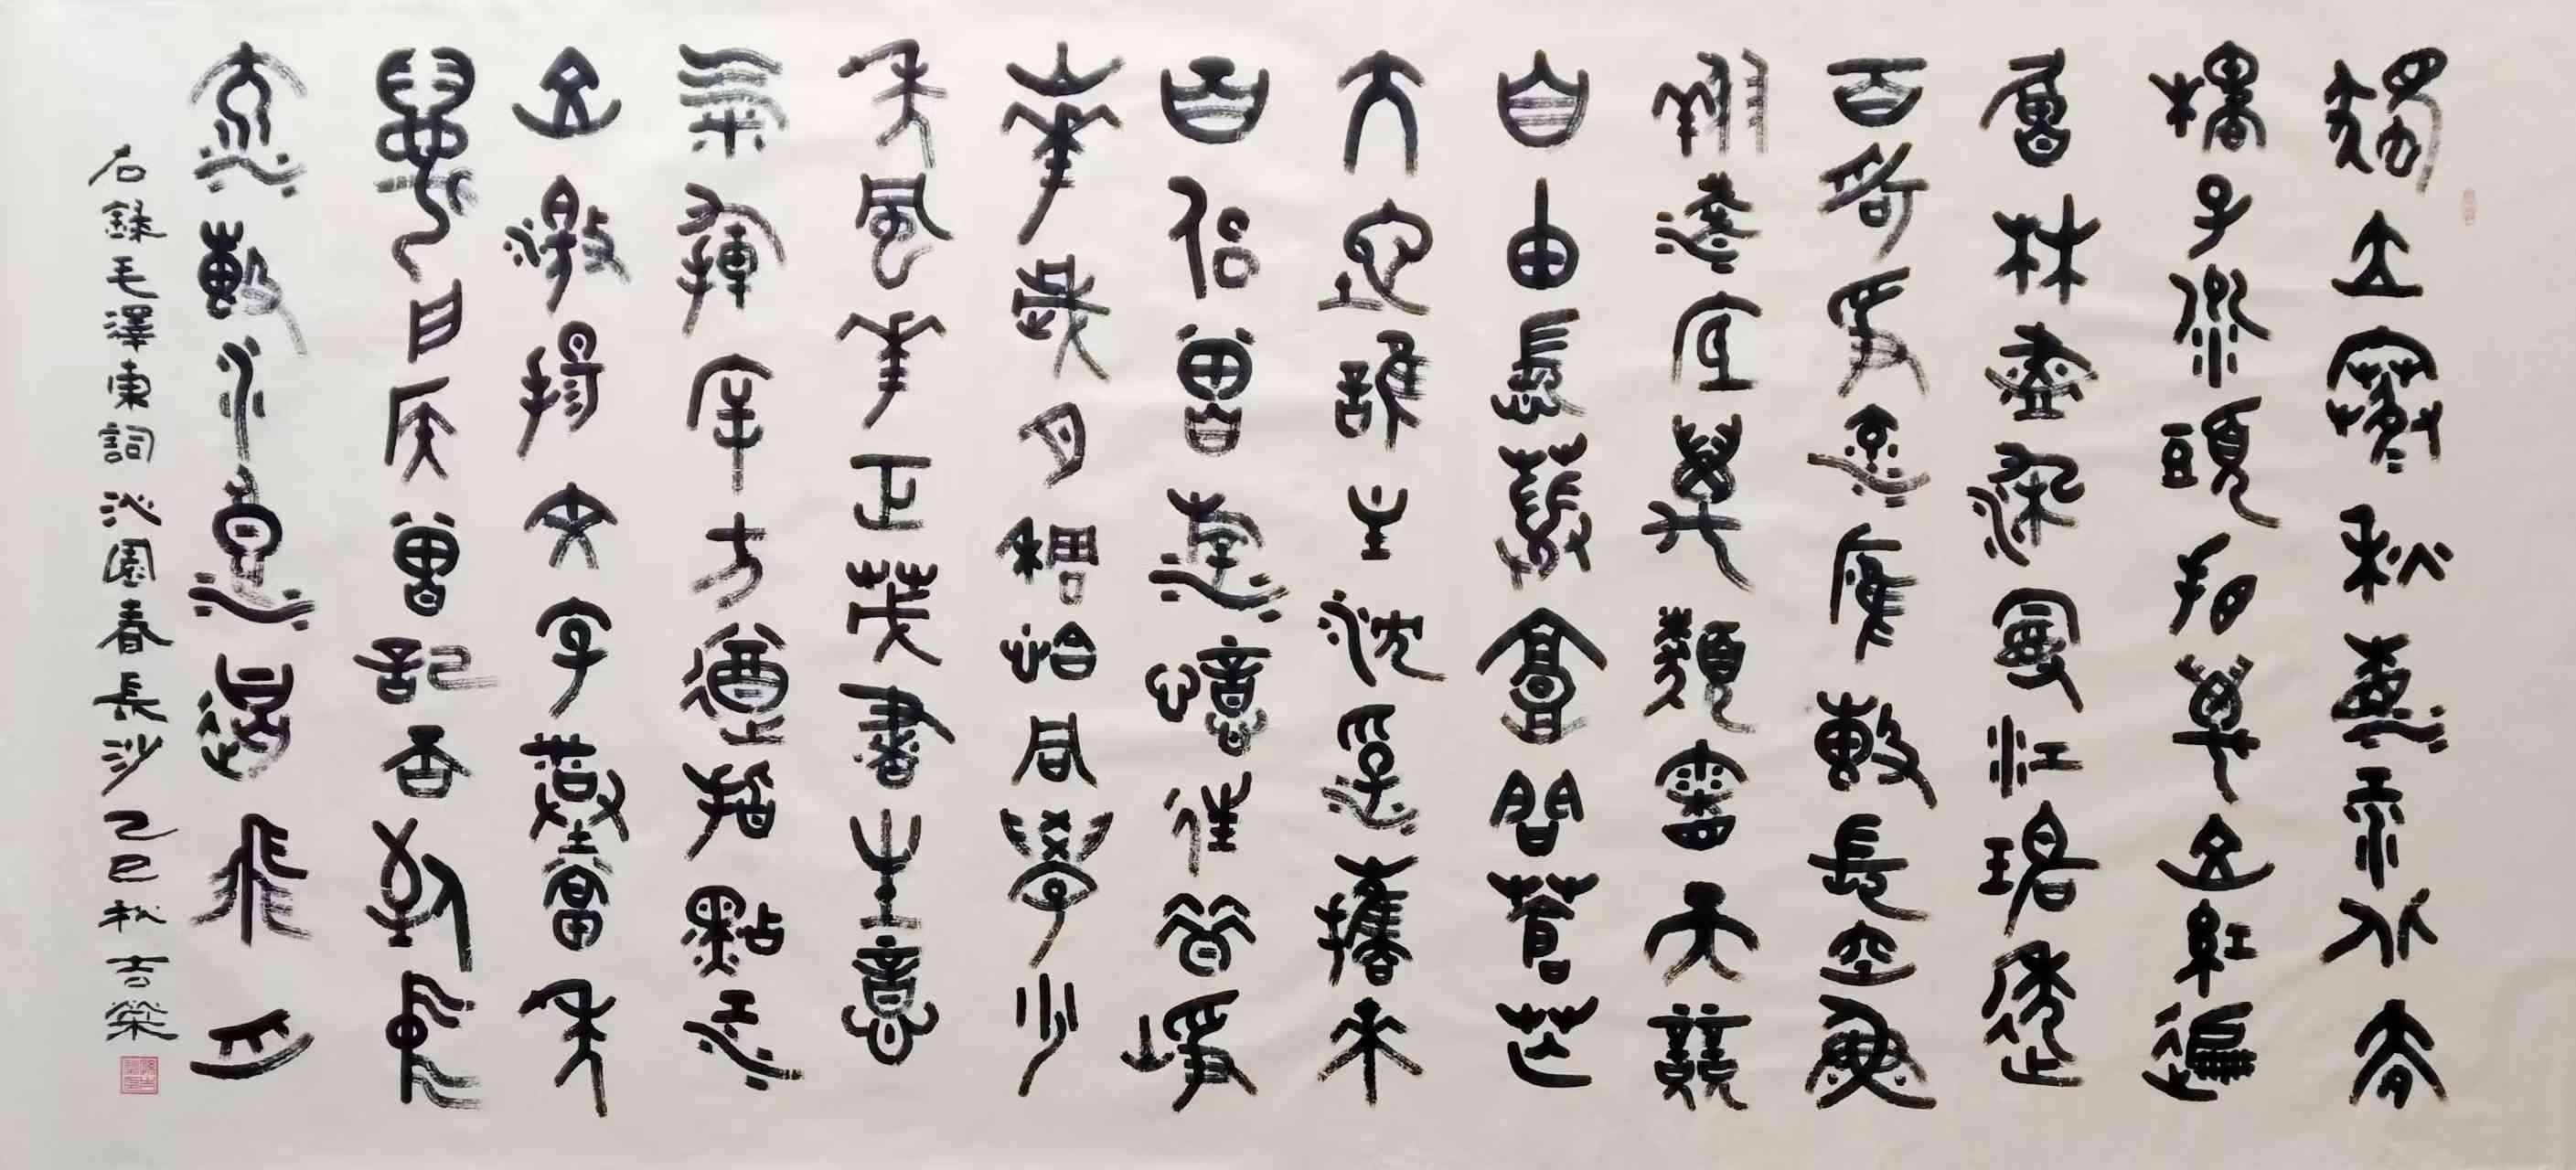 獨立寒秋湘江北去
橘子洲頭看萬山紅遍
層林盡染漫江碧透
百舸爭流鷹擊長空魚
翔淺底萬類霜天競
自由悵寥廓問蒼茫
大地誰主沉浮攜來
百侶曾遊憶往昔崢
嶸歲月稠恰同學少
年風華正茂書生意
氣揮斥方遒指點江
山激揚文字糞土當年
萬戶侯曾記否到中
流擊水浪遏飛舟
右錄毛澤東詞沁園春長沙乙巳秋吉榮